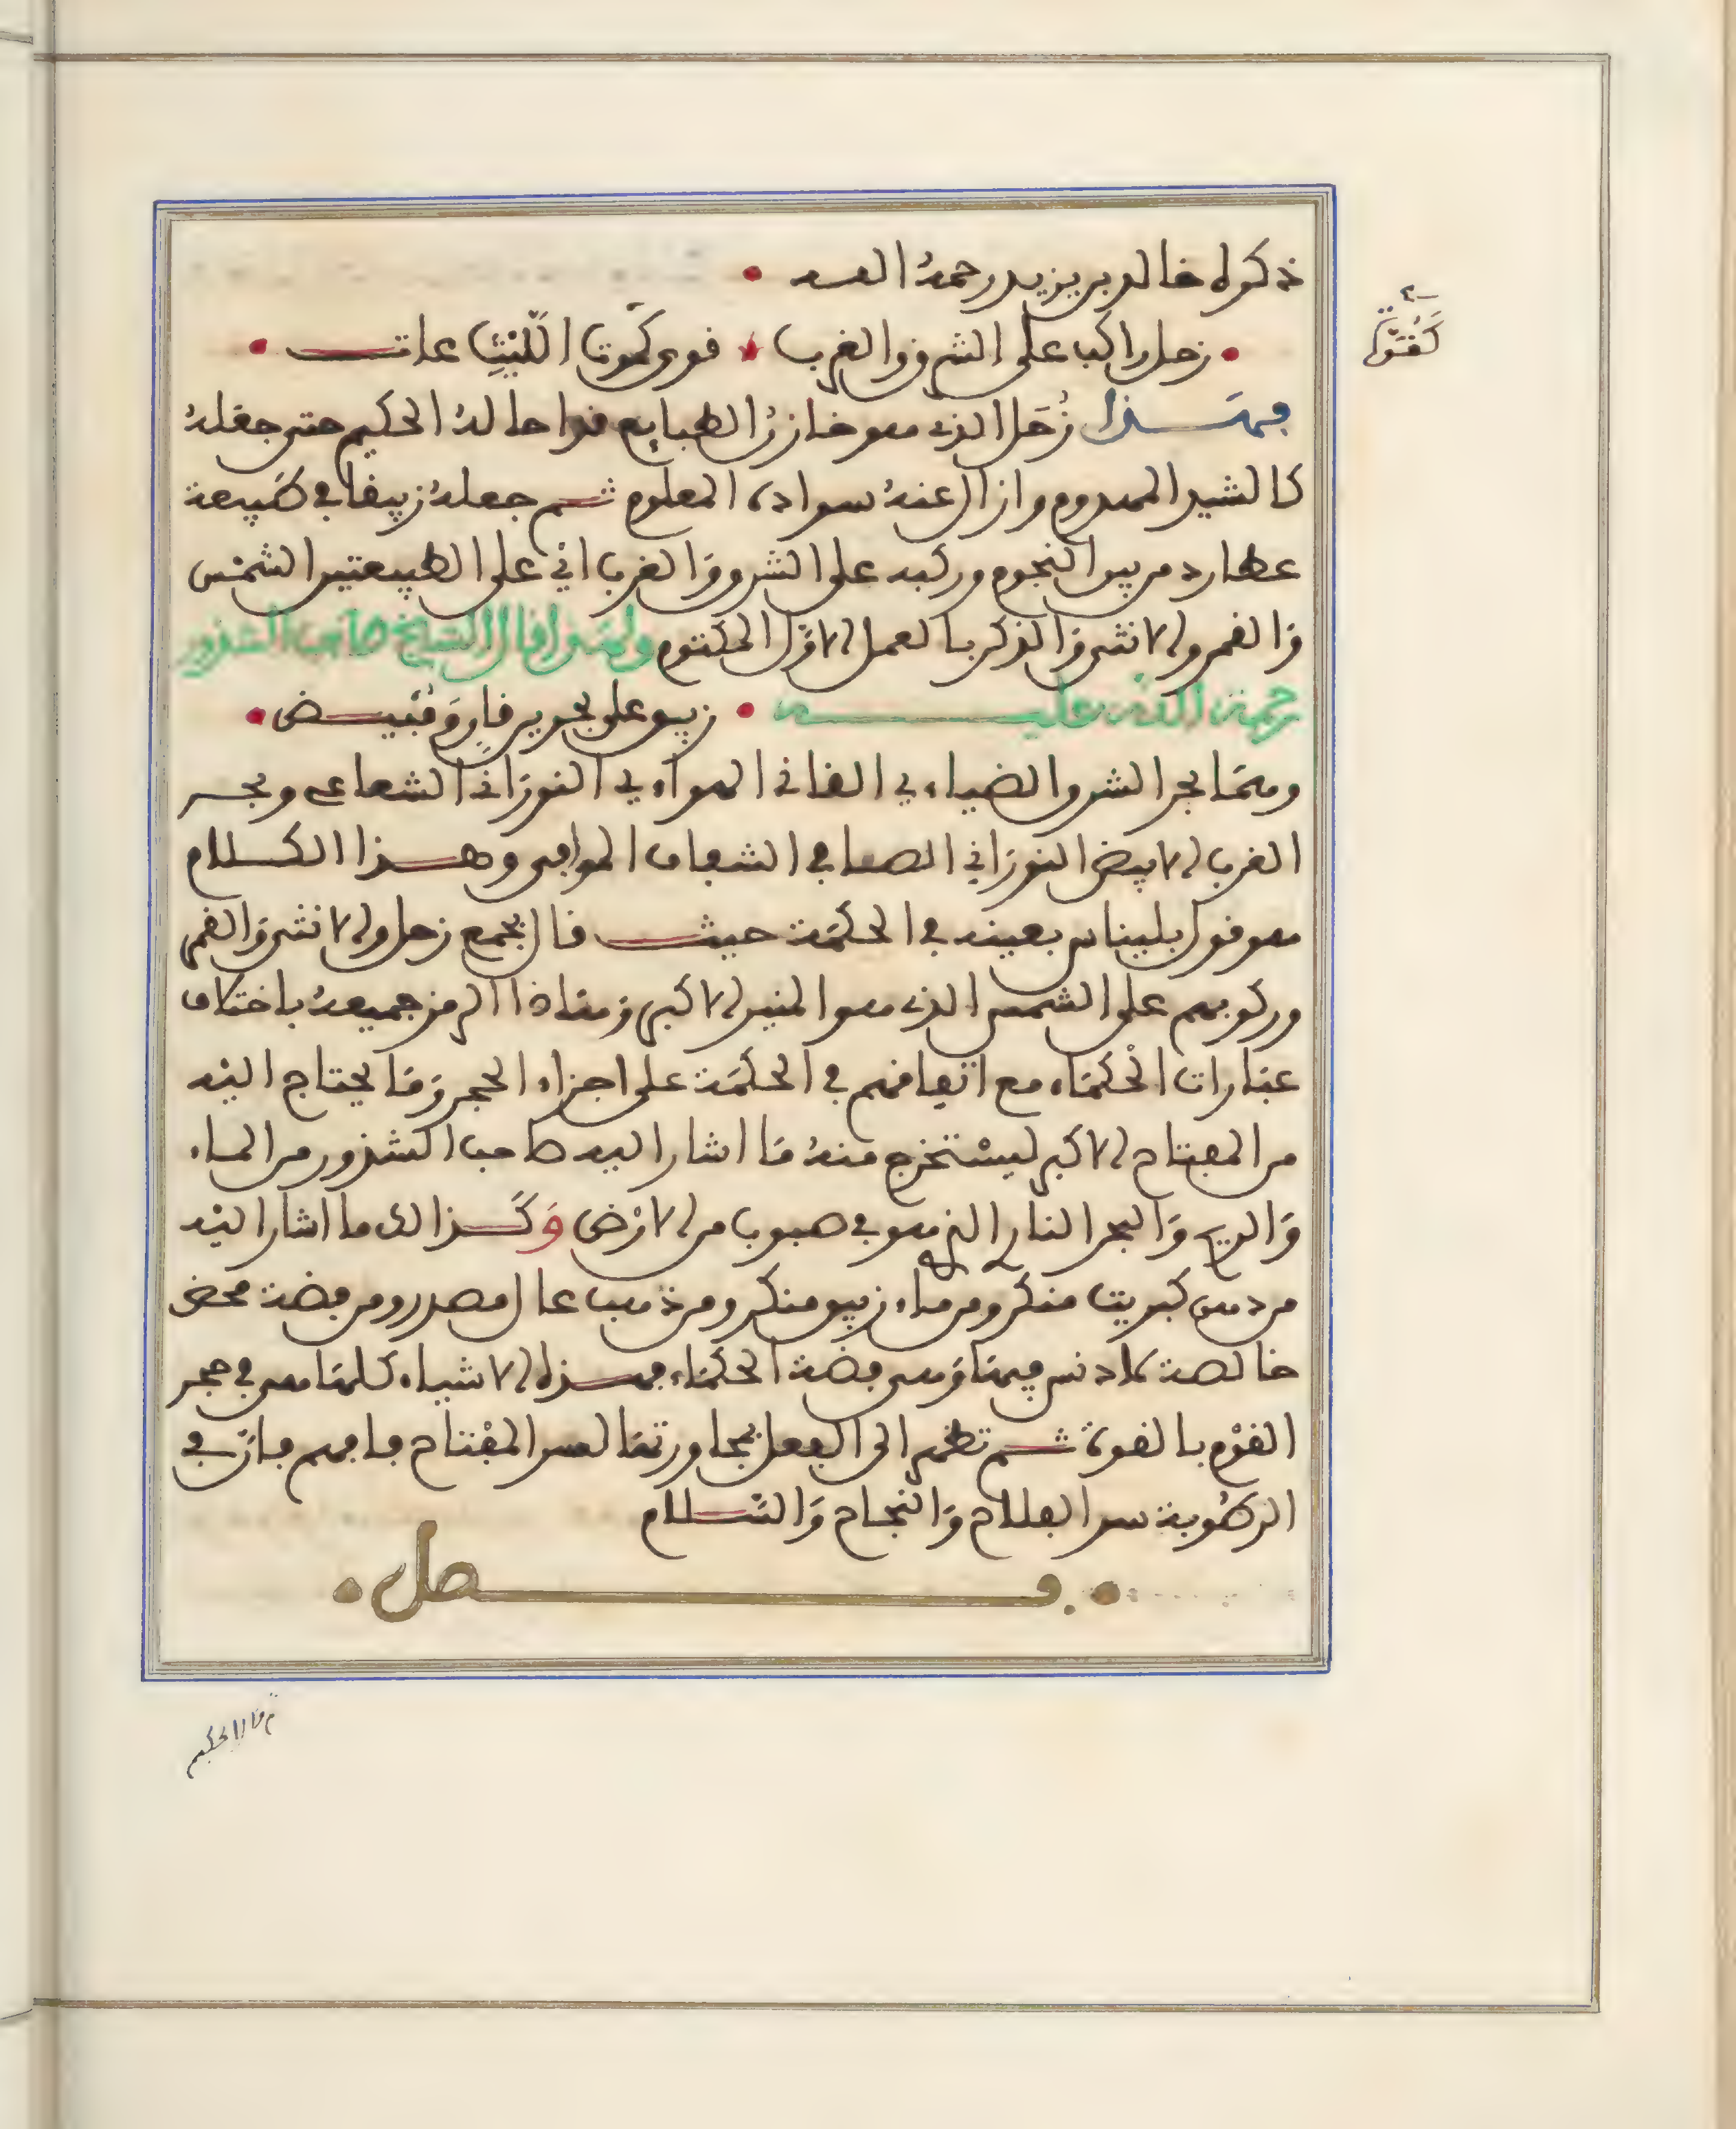 ذكره خالد بن يزيد رحمه الله
كقول
زحل راكبا على الشرق والغرب قوى كموت الليث عات
فهذا زحل الذى هو خازن الطبايع قد احاله الحكيم حتى جعله
كالشىء المعدوم وازال عنه سواده المعلوم ثم جعله زيبقا فى طبيعة
عطارد من بين النجوم وركبه على الشرق والغرب اى على الطبيعتين الشمس
والقمر والانثى والذكر بالعمل الاول المكتوم ولهذا قال الشيخ صاحب الشذور
رحمة الله عليه زيبق على بحرين قان وقبيض
وهما بحر الشرق والضياء فى القانى الهواء فى النورانى الشعاعى وبحر
الغرب الابيض النورانى الصافى الشفاف الموافق وهذا الكلام
هو قول بليناس بعينه فى الحكمة حيث قال بجمع زحل والانثى والقمر
وركوبهم على الشمس الذى هو المنير الاكبر وهذا الرمز جميعه باختلاف
عبارات الحكماء مع اتفاقهم فى الحكمة على اجزاء الحجر وما يحتاج اليه
من المفتاح الاكبر ليستخرج منه ما اشار اليه صاحب الشذور من الماء
والريح والبحر النار التى هو فى صبوب من الارض وكذالك ما اشار اليه
من دهن كبريت منكر ومن ماء زيبق منكر ومن ذهب عال مصدر ومن فضة محض
خالصة لا دنس فيها وهى فضة الحكماء فهذه الاشياء كلها هى فى حجر
القوم بالقوة ثم تظهر الى الفعل بمجاورتها لهذا المفتاح فافهم فان فى
الرطوبة سر الفلاح والنجاح والسلام
فصل
قال الحكيم